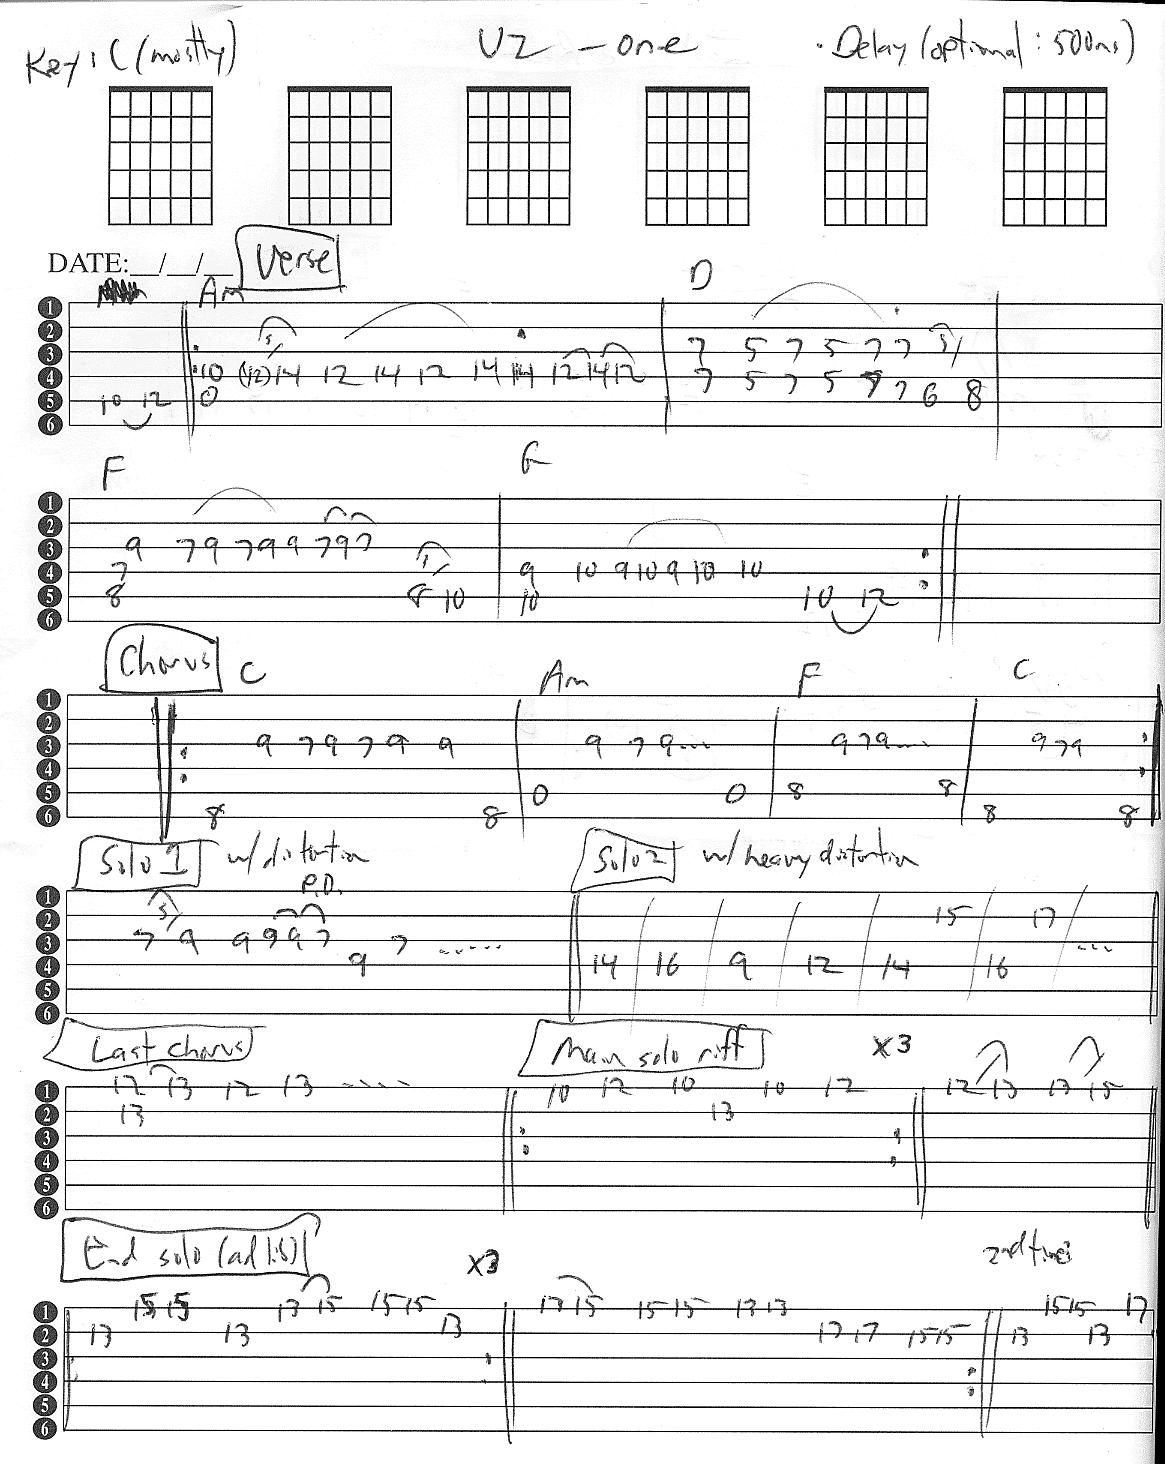 Key: C (mostly) U2 - one · Delay (optional: 500ms)
DATE:__/__/__ Verse
Am D
1
2
3 7 5 7 5 7 7 5/
4 10 (12) 14 12 14 12 14 14 12 14 12 7 5 7 5 7 7 6 8
5 10 12 0
6
F G
1
2
3 9 7 9 7 9 9 7 9 7
4 7 9 10 9 10 9 10 10
5 8 8 10 10 10 12
6
Chorus C Am F C
1
2
3 9 7 9 7 9 9 9 7 9... 9 7 9.... 9 7 9
4
5 0 0 8 8
6 8 8 8 8
Solo 1 w/ distortion Solo 2 w/ heavy distortion
P.O.
1
2 15 17
3 7 9 9 9 9 7 7 ......
4 9 14 16 9 12 14 16 ...
5
6
Last chorus Main solo riff x3
1 12 13 12 13 .... 10 12 10 10 12 12 13 13 15
2 13 13
3
4
5
6
End solo (ad lib) x3 2nd time
1 15 15 13 15 15 15 13 15 15 15 13 13 15 15 17
2 13 13 13 17 17 15 15 13 13
3
4
5
6